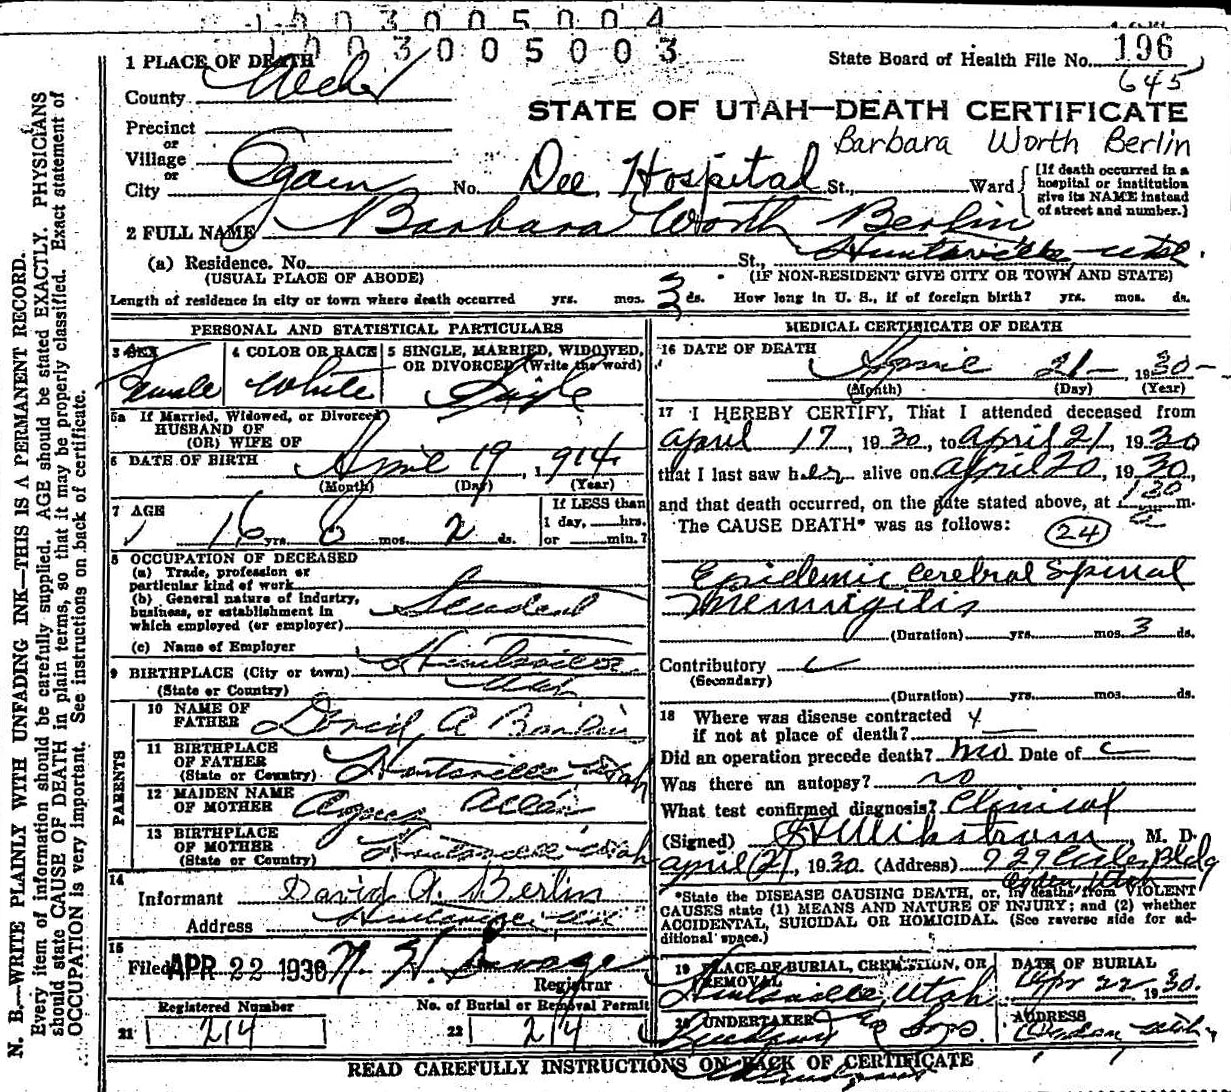 1003005004
1003005003
1 PLACE OF DEATH
State Board of Health File No. 196
645
County Weber
STATE OF UTAH—DEATH CERTIFICATE
Precinct
or
Village
or
Barbara Worth Berlin
City Ogden No. Dee Hospital St., Ward
[If death occurred in a
hospital or institution
give its NAME instead
of street and number.]
2 FULL NAME Barbara Worth Berlin
(a) Residence. No. St., Huntsville Utah.
(USUAL PLACE OF ABODE) (IF NON-RESIDENT GIVE CITY OR TOWN AND STATE)
Length of residence in city or town where death occurred yrs. mos. 3 ds. How long in U. S., if of foreign birth? yrs. mos. ds.
PERSONAL AND STATISTICAL PARTICULARS
3 SEX
Female
4 COLOR OR RACE
White
5 SINGLE, MARRIED, WIDOWED,
OR DIVORCED (Write the word)
Single
5a If Married, Widowed, or Divorced
HUSBAND OF
(OR) WIFE OF
6 DATE OF BIRTH April 19, 1914
(Month) (Day) (Year)
7 AGE
16 yrs. 0 mos. 2 ds.
If LESS than
1 day, hrs.
or min.?
8 OCCUPATION OF DECEASED
(a) Trade, profession or
particular kind of work
(b) General nature of industry,
business, or establishment in
which employed (or employer)
Student
(c) Name of Employer
9 BIRTHPLACE (City or town) Huntsville
(State or Country) Utah
PARENTS
10 NAME OF
FATHER David A Berlin
11 BIRTHPLACE
OF FATHER
(State or Country) Huntsville Utah
12 MAIDEN NAME
OF MOTHER Agnes Allen
13 BIRTHPLACE
OF MOTHER
(State or Country) Huntsville Utah
14
Informant David A. Berlin
Address Huntsville Utah
15
Filed APR 22 1930 Registrar
Registered Number
21 214
No. of Burial or Removal Permit
22 214
MEDICAL CERTIFICATE OF DEATH
16 DATE OF DEATH April 21 1930
(Month) (Day) (Year)
17 I HEREBY CERTIFY, That I attended deceased from
April 17, 1930, to April 21, 1930
that I last saw her alive on April 20, 1930,
and that death occurred, on the date stated above, at 1 30 a m.
The CAUSE DEATH* was as follows: 24
Epidemic Cerebral Spinal
Meningitis
(Duration) yrs. mos. 3 ds.
Contributory
(Secondary)
(Duration) yrs. mos. ds.
18 Where was disease contracted
if not at place of death?
Did an operation precede death? no Date of
Was there an autopsy? no
What test confirmed diagnosis? Clinical
(Signed) M. D.
April 21, 1930 (Address) Bldg
Ogden Utah
*State the DISEASE CAUSING DEATH, or, in deaths from VIOLENT
CAUSES state (1) MEANS AND NATURE OF INJURY; and (2) whether
ACCIDENTAL, SUICIDAL OR HOMICIDAL. (See reverse side for ad-
ditional space.)
19 PLACE OF BURIAL, CREMATION, OR
REMOVAL
Huntsville, Utah
DATE OF BURIAL
Apr 22 1930.
20 UNDERTAKER
& Sons.
ADDRESS
Ogden Utah
READ CAREFULLY INSTRUCTIONS ON BACK OF CERTIFICATE
N. B.—WRITE PLAINLY WITH UNFADING INK—THIS IS A PERMANENT RECORD.
Every item of information should be carefully supplied. AGE should be stated EXACTLY. PHYSICIANS
should state CAUSE OF DEATH in plain terms, so that it may be properly classified. Exact statement of
OCCUPATION is very important. See instructions on back of certificate.